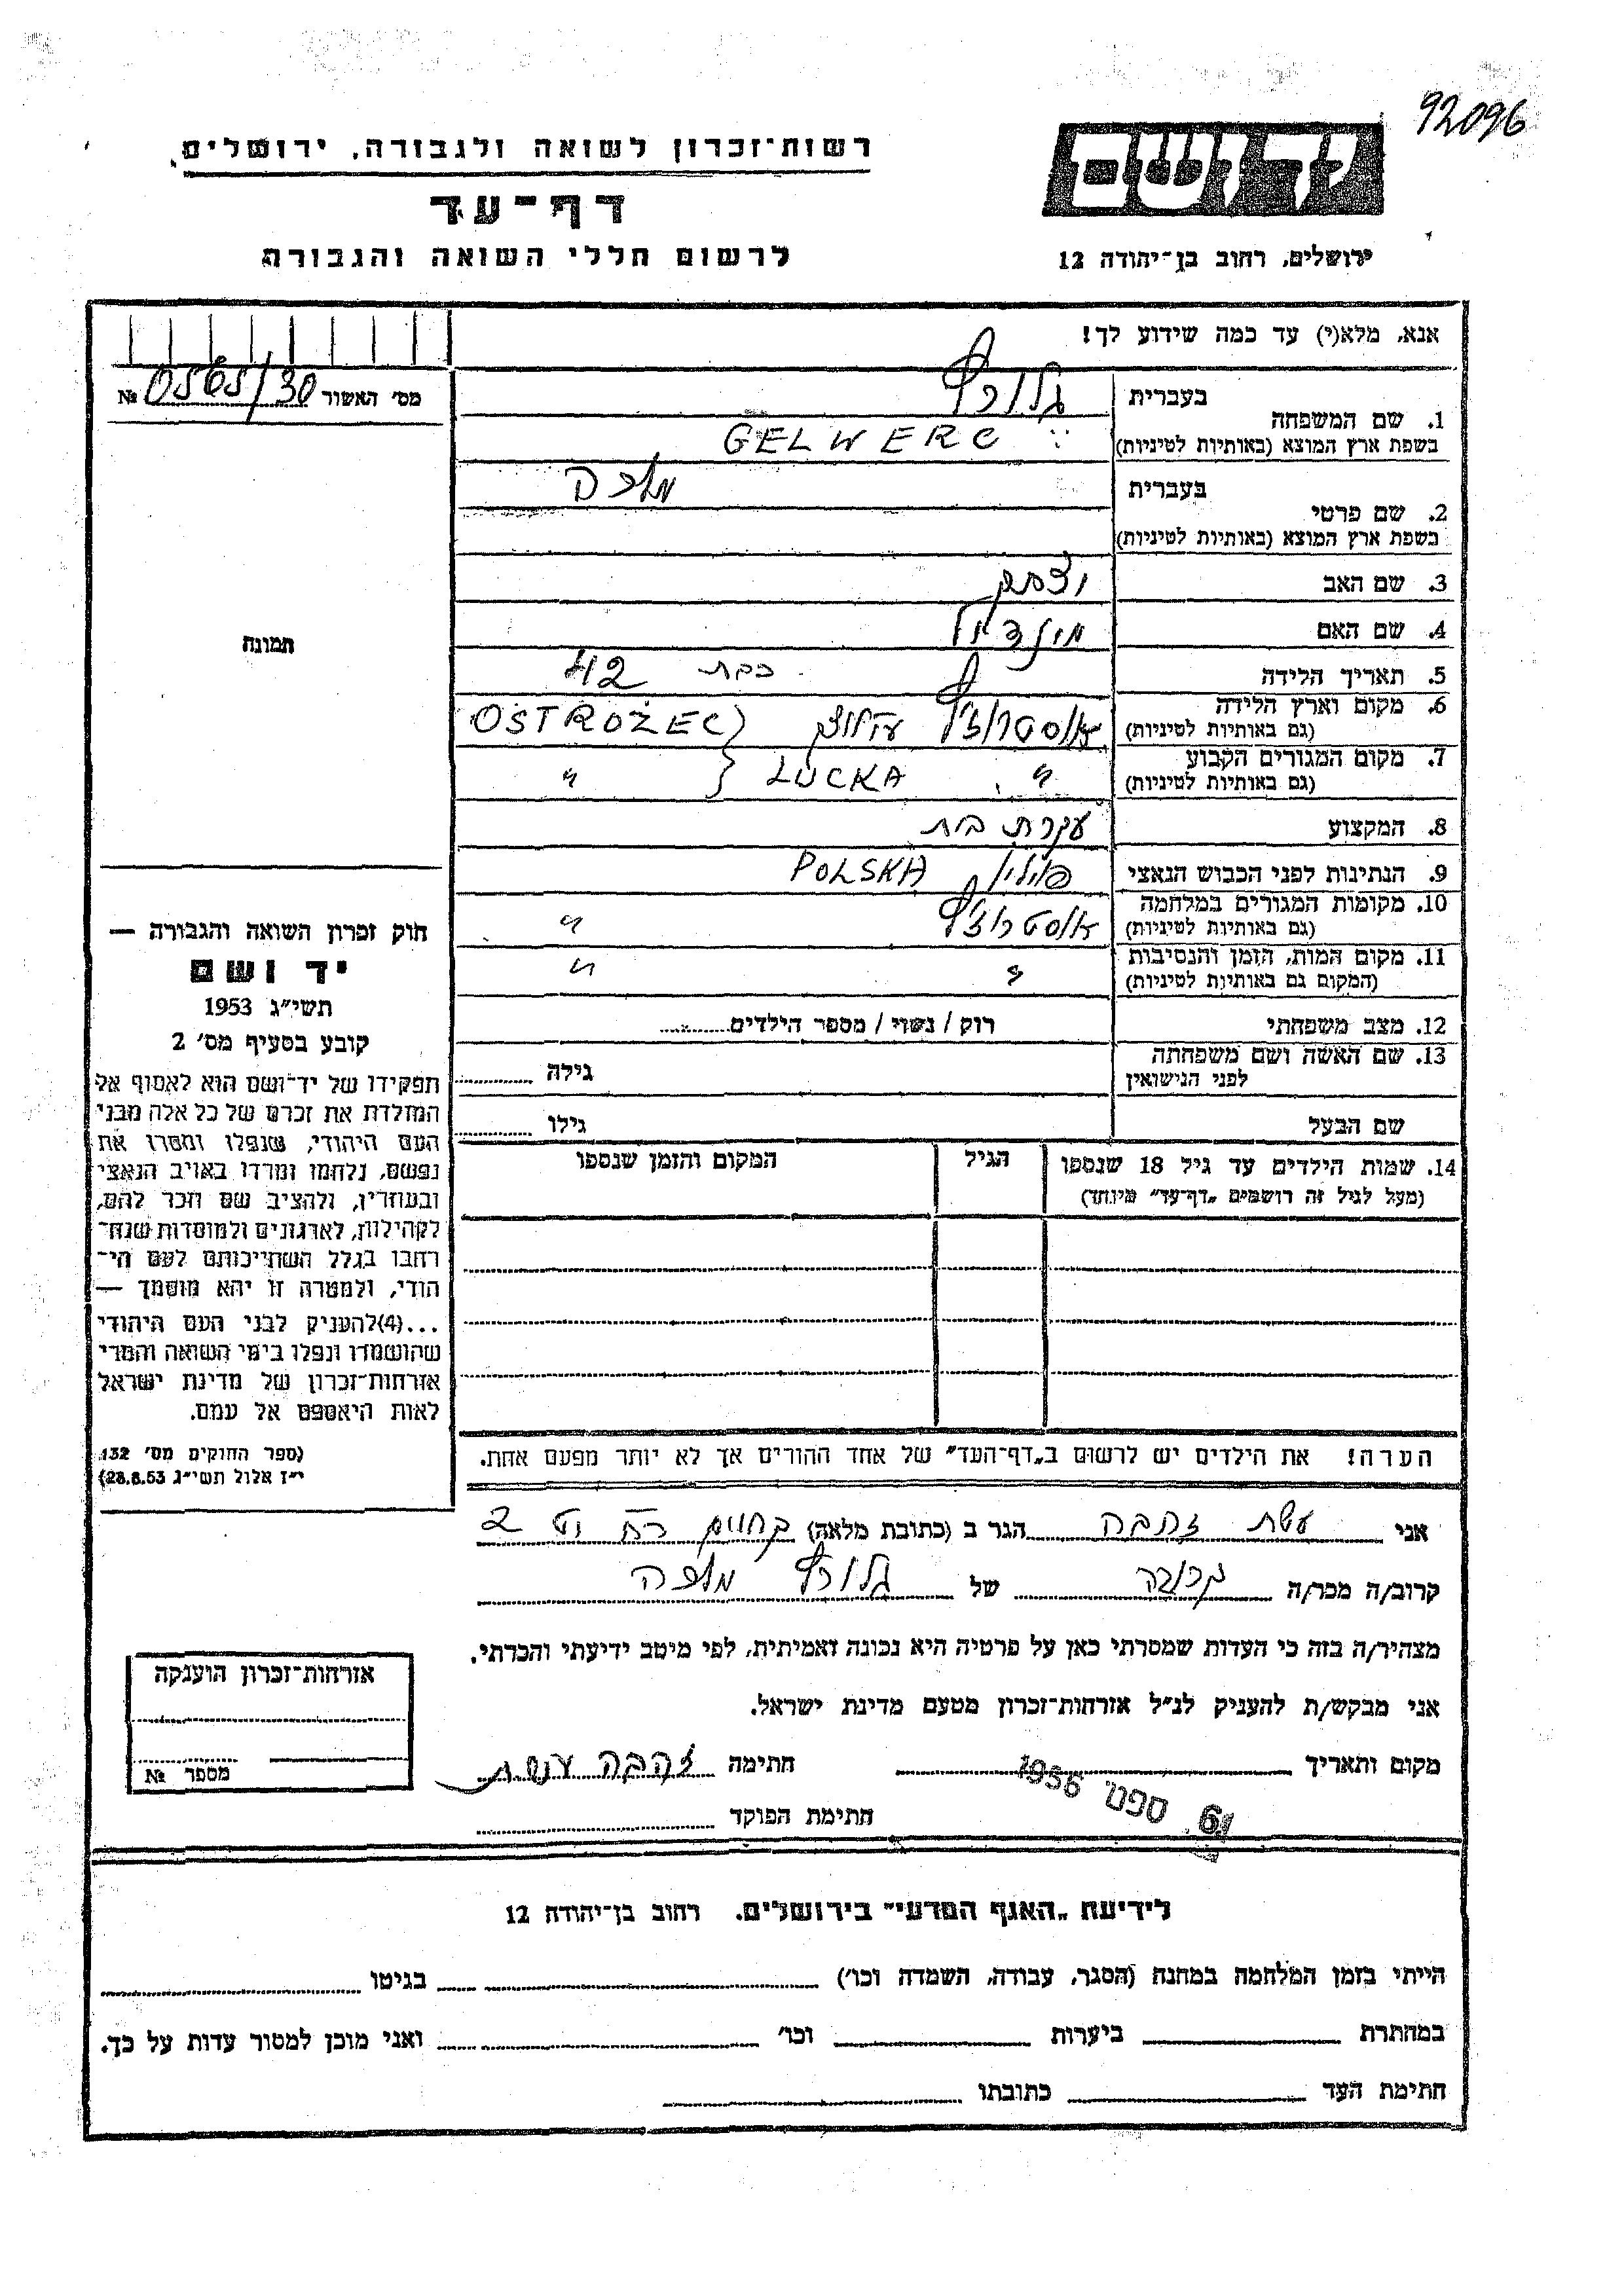 92096
יד ושם
רשות־זכרון לשואה ולגבורה, ירושלים.
דף־עד
לרשום חללי השואה והגבורה
ירושלים, רחוב בן־יהודה 12
אנא, מלא(י) עד כמה שידוע לך!
מס׳ האשור № 0565/30
תמונה
1. שם המשפחה
בעברית
גלורץ
בשפת ארץ המוצא (באותיות לטיניות)
GELWERC
2. שם פרטי
בעברית
מלכה
בשפת ארץ המוצא (באותיות לטיניות)
3. שם האב
יצחק
4. שם האם
מינדיל
5. תאריך הלידה
כבת 42
6. מקום וארץ הלידה
(גם באותיות לטיניות)
אוסטרוז׳ץ OSTROŻEC
7. מקום המגורים הקבוע
(גם באותיות לטיניות)
״ ŁUCKA ״
8. המקצוע
עקרת בית
9. הנתינות לפני הכבוש הנאצי
פולין POLSKA
10. מקומות המגורים במלחמה
(גם באותיות לטיניות)
אוסטרוז׳ץ ״
11. מקום המות, הזמן והנסיבות
(המקום גם באותיות לטיניות)
״ ״
12. מצב משפחתי
רוק / נשוי / מספר הילדים
13. שם האשה ושם משפחתה
לפני הנישואין
גילה
שם הבעל
גילו
14. שמות הילדים עד גיל 18 שנספו
(מעל לגיל זה רושמים „דף־עד״ מיוחד)
הגיל
המקום והזמן שנספו
הערה! את הילדים יש לרשום ב„דף־העד״ של אחד ההורים אך לא יותר מפעם אחת.
חוק זכרון השואה והגבורה —
יד ושם
תשי״ג 1953
קובע בסעיף מס׳ 2
תפקידו של יד־ושם הוא לאסוף אל
המולדת את זכרם של כל אלה מבני
העם היהודי, שנפלו ומסרו את
נפשם, נלחמו ומרדו באויב הנאצי
ובעוזריו, ולהציב שם וזכר להם,
לקהילות, לארגונים ולמוסדות שנח־
רבו בגלל השתייכותם לעם הי־
הודי, ולמטרה זו יהא מוסמך —
...(4)להעניק לבני העם היהודי
שהושמדו ונפלו בימי השואה והמרי
אזרחות־זכרון של מדינת ישראל
לאות היאספם אל עמם.
(ספר החוקים מס׳ 132
י״ז אלול תשי״ג 28.8.53)
אני עשת זהבה הגר ב (כתובת מלאה)
קרוב/ה מכר/ה קרובה של גלורץ מלכה
מצהיר/ה בזה כי העדות שמסרתי כאן על פרטיה היא נכונה ואמיתית, לפי מיטב ידיעתי והכרתי.
אני מבקש/ת להעניק לנ״ל אזרחות־זכרון מטעם מדינת ישראל.
מקום ותאריך
ספט׳ 1956
חתימה זהבה עשת
חתימת הפוקד
אזרחות־זכרון הוענקה
מספר №
לידיעת „האגף המדעי״ בירושלים. רחוב בן־יהודה 12
הייתי בזמן המלחמה במחנה (הסגר, עבודה, השמדה וכו׳) בגיטו
במחתרת ביערות וכו׳ ואני מוכן למסור עדות על כך.
חתימת העד כתובתו